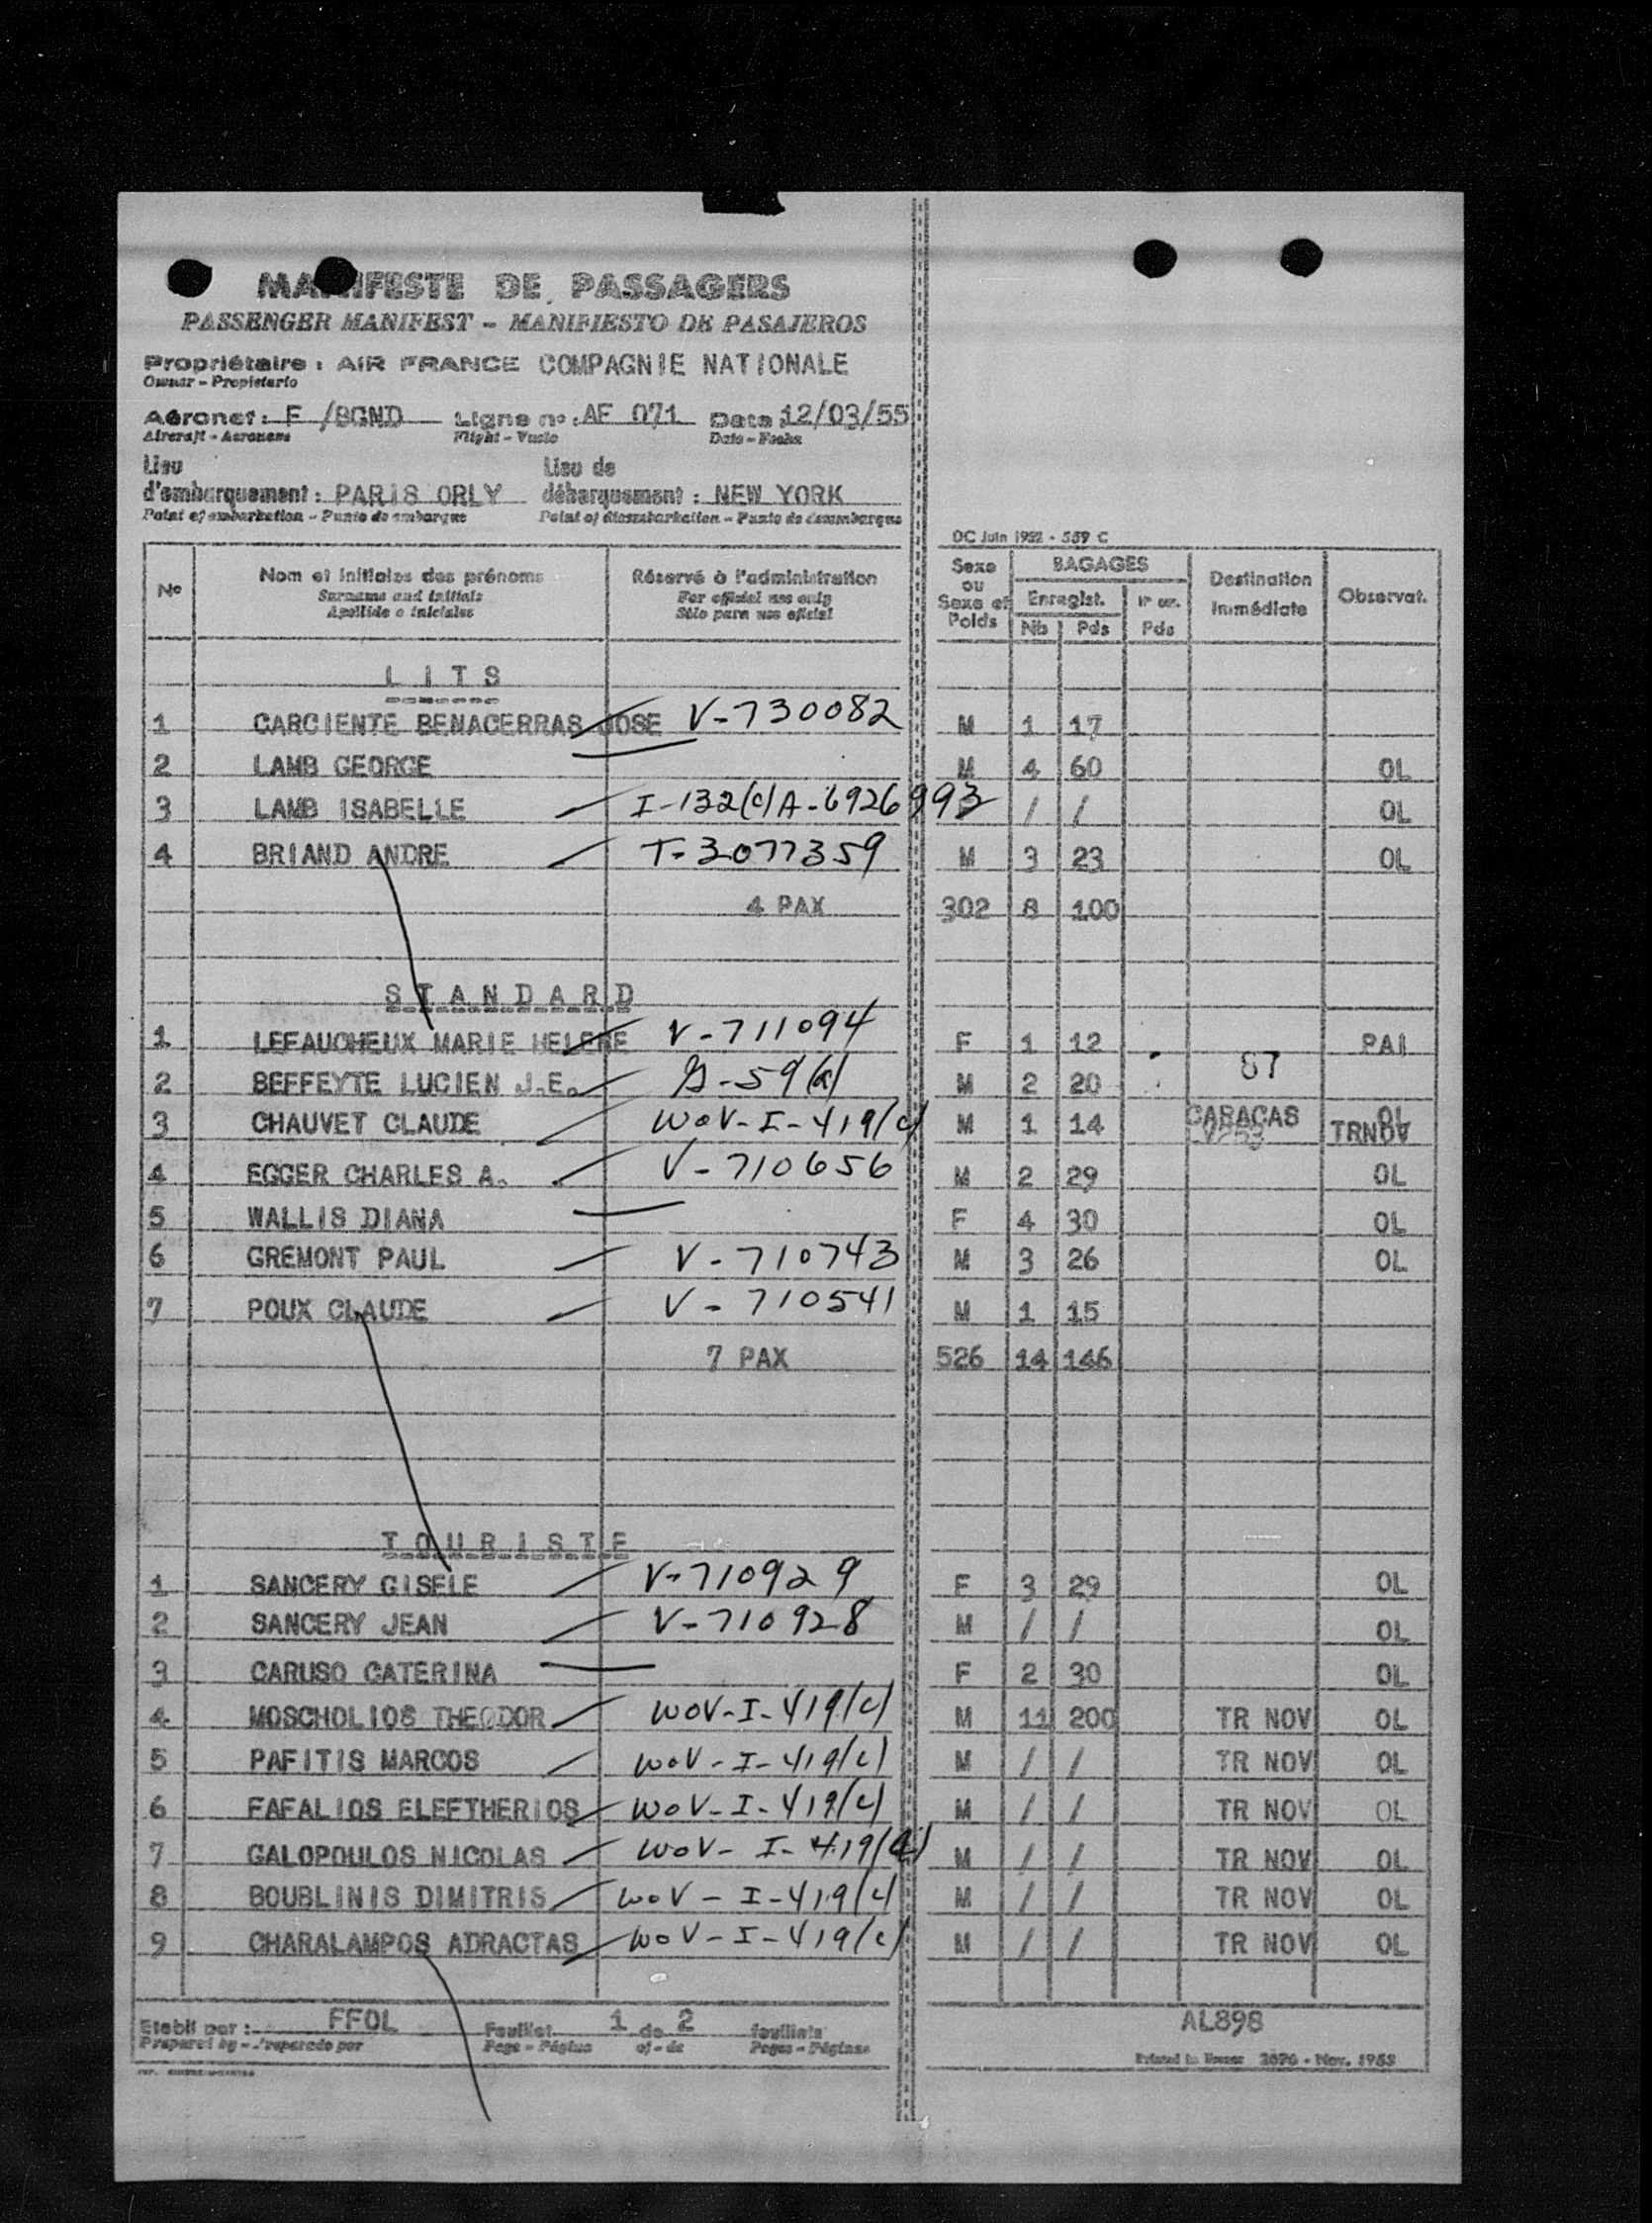 MANIFESTE DE PASSAGERS
PASSENGER MANIFEST - MANIFIESTO DE PASAJEROS
Propriétaire : AIR FRANCE COMPAGNIE NATIONALE
Owner - Propietario
Aéronef : F /BGND Ligne n° : AF 071 Date : 12/03/55
Aircraft - Aeronave Flight - Vuelo Date - Fecha
Lieu Lieu de
d'embarquement : PARIS ORLY débarquement : NEW YORK
Point of embarkation - Punto de embarque Point of disembarkation - Punto de desembarque
DC Juin 1952 - 559 C
N° Nom et initiales des prénoms Réservé à l'administration Sexe ou Sexe et Poids BAGAGES Destination Immédiate Observat.
Surname and initials For official use only Enregist.
Apellido e iniciales Sólo para uso oficial Nb Pds Pds
LITS
1 CARCIENTE BENACERRAS JOSE V-730082 M 1 17
2 LAMB GEORGE M 4 60 OL
3 LAMB ISABELLE I-132(c) A-6926993 / / OL
4 BRIAND ANDRE T-3077359 M 3 23 OL
4 PAX 302 8 100
STANDARD
1 LEFAUCHEUX MARIE HELENE V-711094 F 1 12 PAI
87
2 BEFFEYTE LUCIEN J.E. G-59(a) M 2 20
3 CHAUVET CLAUDE WOV-I-419(c) M 1 14 CARACAS OL
TRNOV
4 EGGER CHARLES A. V-710656 M 2 29 OL
5 WALLIS DIANA F 4 30 OL
6 GREMONT PAUL V-710743 M 3 26 OL
7 POUX CLAUDE V-710541 M 1 15
7 PAX 526 14 146
TOURISTE
1 SANCERY GISELE V-710929 F 3 29 OL
2 SANCERY JEAN V-710928 M / / OL
3 CARUSO CATERINA F 2 30 OL
4 MOSCHOLIOS THEODOR WOV-I-419(c) M 11 200 TR NOV OL
5 PAFITIS MARCOS WOV-I-419(c) M / / TR NOV OL
6 FAFALIOS ELEFTHERIOS WOV-I-419(c) M / / TR NOV OL
7 GALOPOULOS NICOLAS WOV-I-419(c) M / / TR NOV OL
8 BOUBLINIS DIMITRIS WOV-I-419(c) M / / TR NOV OL
9 CHARALAMPOS ADRACTAS WOV-I-419(c) M / / TR NOV OL
Etabli par : FFOL Feuillet 1 de 2 feuillets AL898
Prepared by - Preparado por Page - Página of - de Pages - Páginas
Nov. 1953